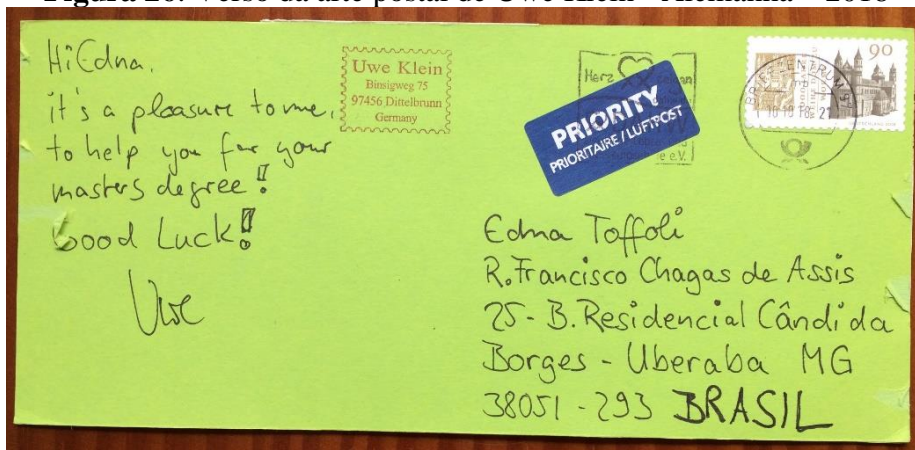 Figura 20: Verso da arte postal de Uwe Klein - Alemanha - 2018
Hi Edna.
it's a pleasure to me,
to help you for your
masters degree!
Good Luck!
Uwe
Uwe Klein
Binsigweg 75
97456 Dittelbrunn
Germany
Herz
PRIORITY
PRIORITAIRE / LUFTPOST
e.V.
BRIEFZENTRUM
90
Edna Toffoli
R. Francisco Chagas de Assis
25 - B. Residencial Cândida
Borges - Uberaba MG
38051 - 293 BRASIL